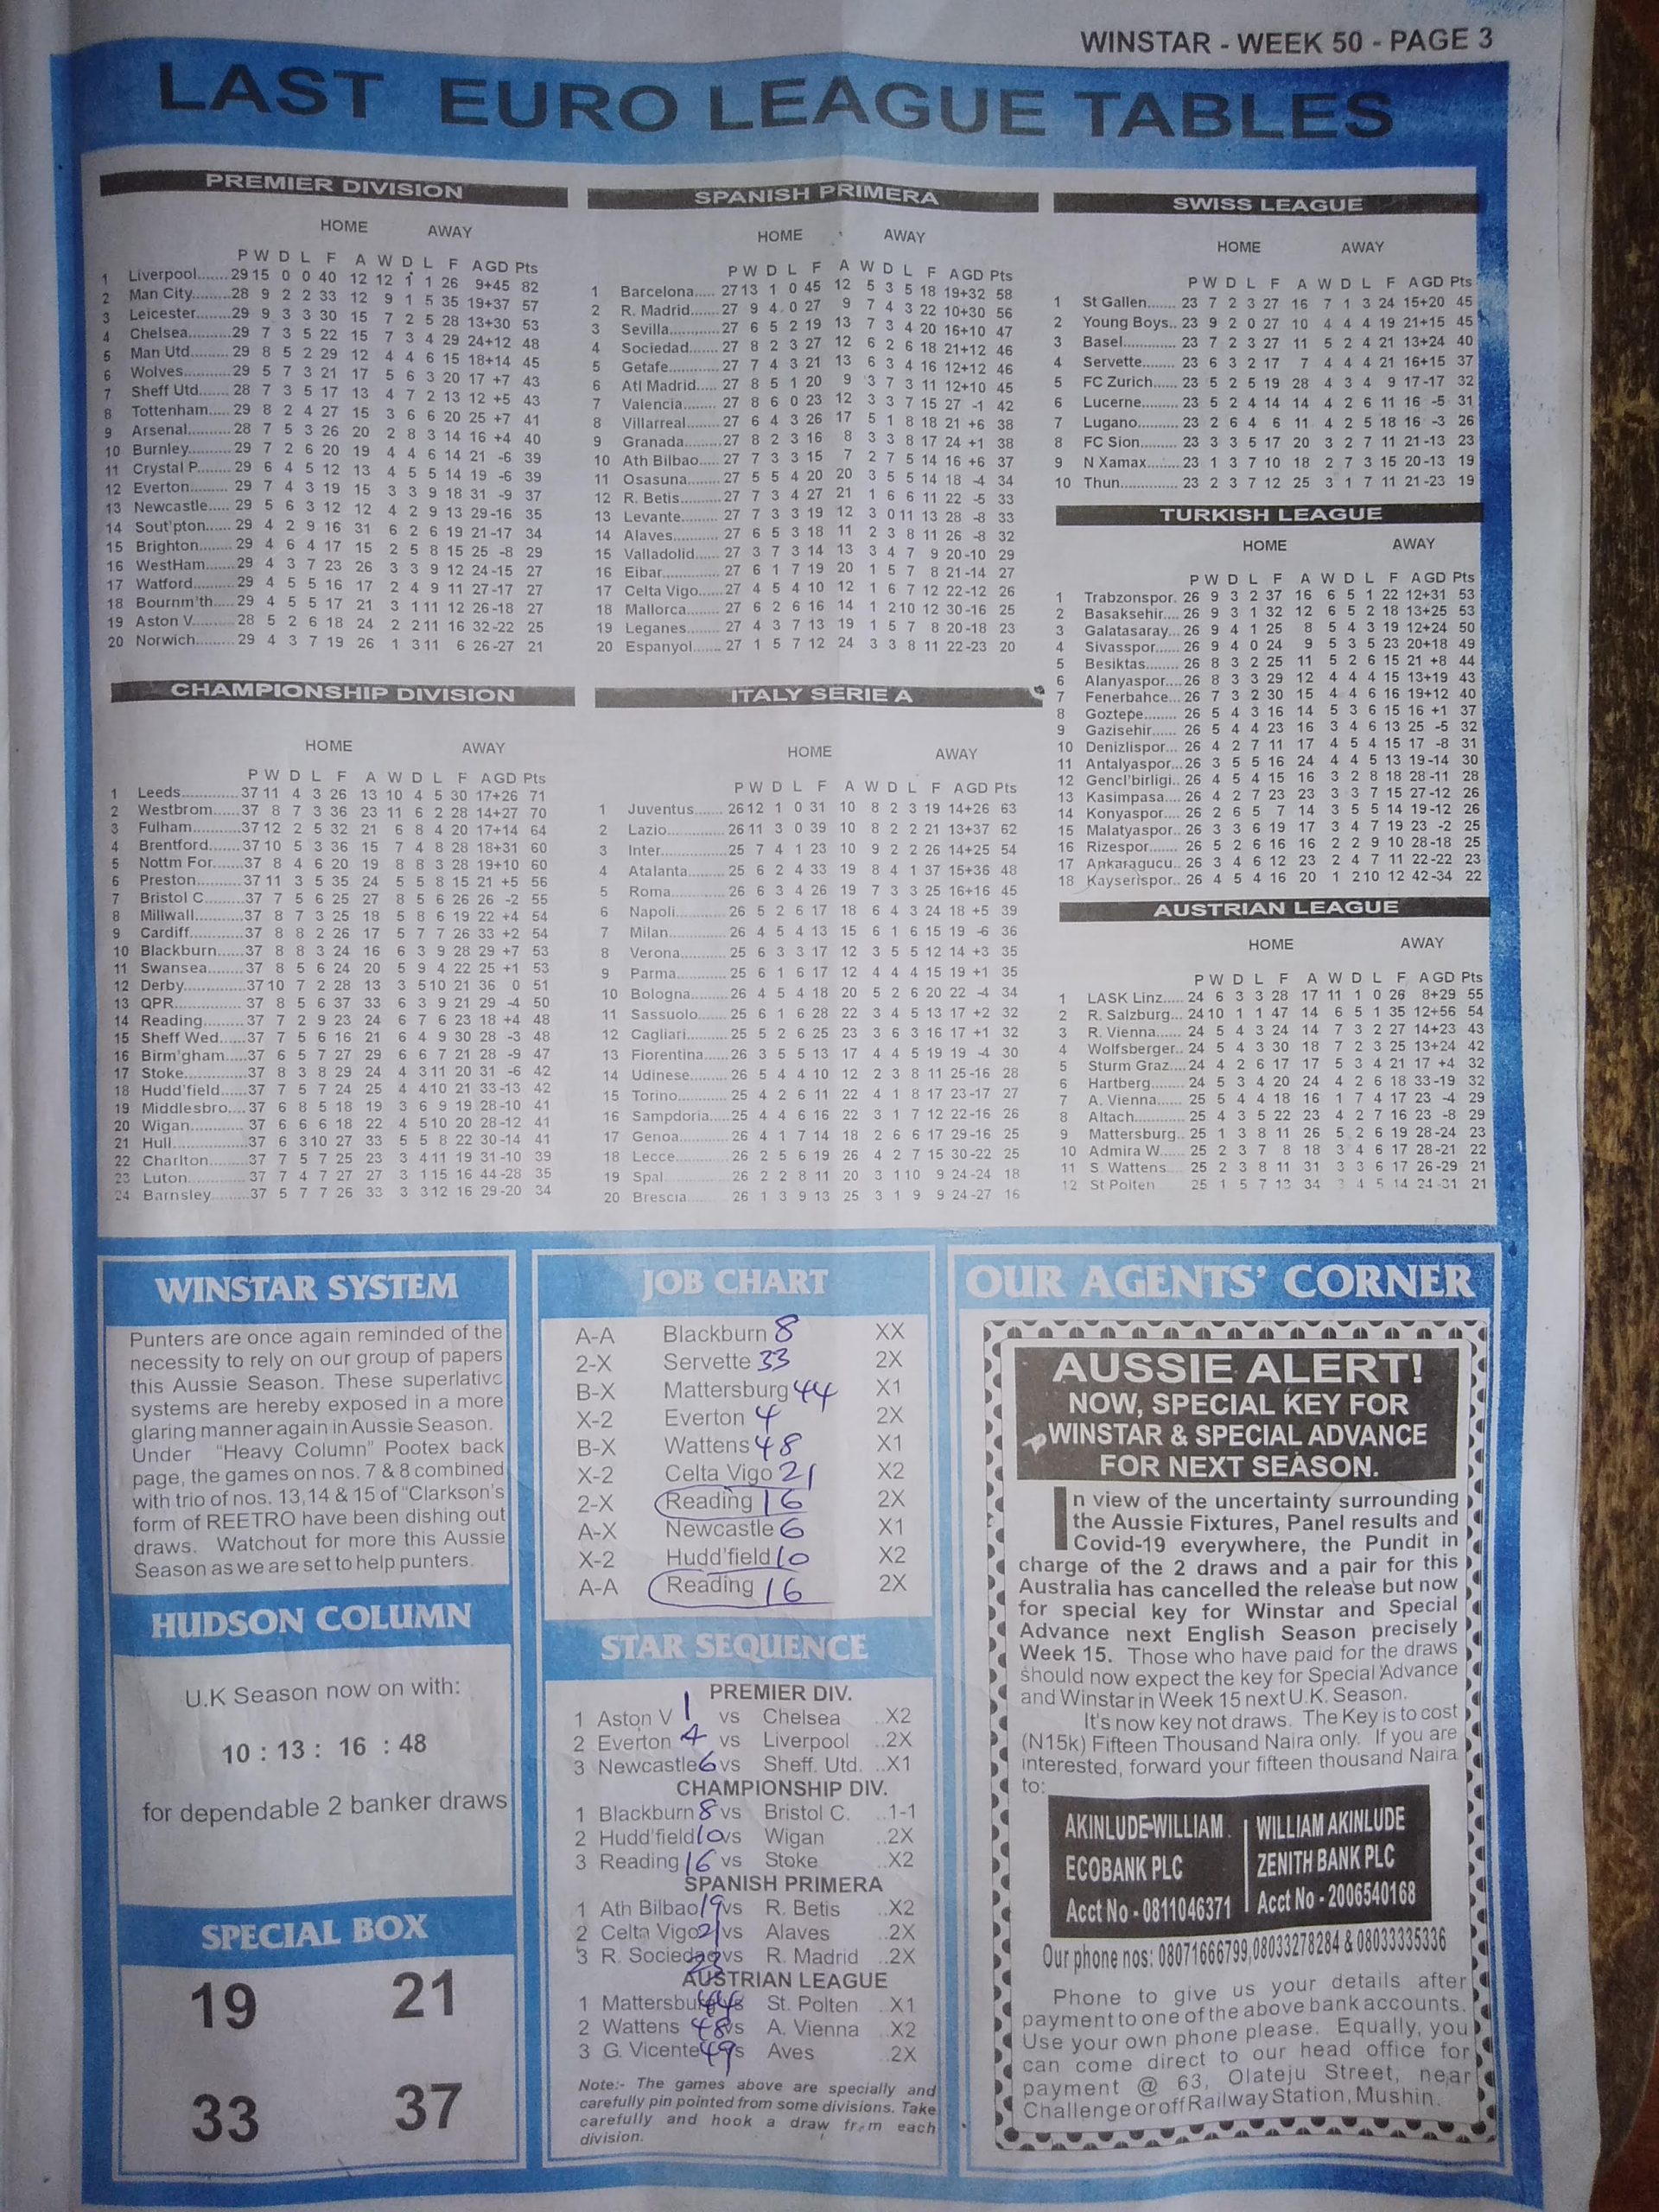 WINSTAR - WEEK 50 - PAGE 3
LAST EURO LEAGUE TABLES
PREMIER DIVISION
HOME AWAY
P W D L F A W D L F A GD Pts
1 Liverpool....... 29 15 0 0 40 12 12 1 1 26 9 +45 82
2 Man City......... 28 9 2 2 33 12 9 1 5 35 19 +37 57
3 Leicester....... 29 9 3 3 30 15 7 2 5 28 13 +30 53
4 Chelsea......... 29 7 3 5 22 15 7 3 4 29 24 +12 48
5 Man Utd......... 29 8 5 2 29 12 4 4 6 15 18 +14 45
6 Wolves.......... 29 5 7 3 21 17 5 6 3 20 17 +7 43
7 Sheff Utd....... 28 7 3 5 17 13 4 7 2 13 12 +5 43
8 Tottenham..... 29 8 2 4 27 15 3 6 6 20 25 +7 41
9 Arsenal.......... 28 7 5 3 26 20 2 8 3 14 16 +4 40
10 Burnley......... 29 7 2 6 20 19 4 4 6 14 21 -6 39
11 Crystal P....... 29 6 4 5 12 13 4 5 5 14 19 -6 39
12 Everton......... 29 7 4 3 19 15 3 3 9 18 31 -9 37
13 Newcastle..... 29 5 6 3 12 12 4 2 9 13 29 -16 35
14 Sout'pton...... 29 4 2 9 16 31 6 2 6 19 21 -17 34
15 Brighton........ 29 4 6 4 17 15 2 5 8 15 25 -8 29
16 WestHam...... 29 4 3 7 23 26 3 3 9 12 24 -15 27
17 Watford......... 29 4 5 5 16 17 2 4 9 11 27 -17 27
18 Bournm'th..... 29 4 5 5 17 21 3 1 11 12 26 -18 27
19 Aston V......... 28 5 2 6 18 24 2 2 11 16 32 -22 25
20 Norwich........ 29 4 3 7 19 26 1 3 11 6 26 -27 21
CHAMPIONSHIP DIVISION
HOME AWAY
P W D L F A W D L F A GD Pts
1 Leeds............ 37 11 4 3 26 13 10 4 5 30 17 +26 71
2 Westbrom...... 37 8 7 3 36 23 11 6 2 28 14 +27 70
3 Fulham.......... 37 12 2 5 32 21 6 8 4 20 17 +14 64
4 Brentford........ 37 10 5 3 36 15 7 4 8 28 18 +31 60
5 Nottm For...... 37 8 4 6 20 19 8 8 3 28 19 +10 60
6 Preston.......... 37 11 3 5 35 24 5 5 8 15 21 +5 56
7 Bristol C........ 37 7 5 6 25 27 8 5 6 26 26 -2 55
8 Millwall.......... 37 8 7 3 25 18 5 8 6 19 22 +4 54
9 Cardiff........... 37 8 8 2 26 17 5 7 7 26 33 +2 54
10 Blackburn..... 37 8 8 3 24 16 6 3 9 28 29 +7 53
11 Swansea....... 37 8 5 6 24 20 5 9 4 22 25 +1 53
12 Derby........... 37 10 7 2 28 13 3 5 10 21 36 0 51
13 QPR............. 37 8 5 6 37 33 6 3 9 21 29 -4 50
14 Reading....... 37 7 2 9 23 24 6 7 6 23 18 +4 48
15 Sheff Wed.... 37 7 5 6 16 21 6 4 9 30 28 -3 48
16 Birm'gham.... 37 6 5 7 27 29 6 6 7 21 28 -9 47
17 Stoke........... 37 8 3 8 29 24 4 3 11 20 31 -6 42
18 Hudd'field..... 37 7 5 7 24 25 4 4 10 21 33 -13 42
19 Middlesbro... 37 6 8 5 18 19 3 6 9 19 28 -10 41
20 Wigan.......... 37 6 6 6 18 22 4 5 10 20 28 -12 41
21 Hull.............. 37 6 3 10 27 33 5 5 8 22 30 -14 41
22 Charlton....... 37 7 5 7 25 23 3 4 11 19 31 -10 39
23 Luton........... 37 7 4 7 27 27 3 1 15 16 44 -28 35
24 Barnsley...... 37 5 7 7 26 33 3 3 12 16 29 -20 34
SPANISH PRIMERA
HOME AWAY
P W D L F A W D L F A GD Pts
1 Barcelona..... 27 13 1 0 45 12 5 3 5 18 19 +32 58
2 R. Madrid...... 27 9 4 0 27 9 7 4 3 22 10 +30 56
3 Sevilla........... 27 6 5 2 19 13 7 3 4 20 16 +10 47
4 Sociedad....... 27 8 2 3 27 12 6 2 6 18 21 +12 46
5 Getafe........... 27 7 4 3 21 13 6 3 4 16 12 +12 46
6 Atl Madrid..... 27 8 5 1 20 9 3 7 3 11 12 +10 45
7 Valencia........ 27 8 6 0 23 12 3 3 7 15 27 -1 42
8 Villarreal........ 27 6 4 3 26 17 5 1 8 18 21 +6 38
9 Granada........ 27 8 2 3 16 8 3 3 8 17 24 +1 38
10 Ath Bilbao.... 27 7 3 3 15 7 2 7 5 14 16 +6 37
11 Osasuna...... 27 5 5 4 20 20 3 5 5 14 18 -4 34
12 R. Betis........ 27 7 3 4 27 21 1 6 6 11 22 -5 33
13 Levante........ 27 7 3 3 19 12 3 0 11 13 28 -8 33
14 Alaves.......... 27 6 5 3 18 11 2 3 8 11 26 -8 32
15 Valladolid..... 27 3 7 3 14 13 3 4 7 9 20 -10 29
16 Eibar............ 27 6 1 7 19 20 1 5 7 8 21 -14 27
17 Celta Vigo.... 27 4 5 4 10 12 1 6 7 12 22 -12 26
18 Mallorca....... 27 6 2 6 16 14 1 2 10 12 30 -16 25
19 Leganes....... 27 4 3 7 13 19 1 5 7 8 20 -18 23
20 Espanyol...... 27 1 5 7 12 24 3 3 8 11 22 -23 20
ITALY SERIE A
HOME AWAY
P W D L F A W D L F A GD Pts
1 Juventus....... 26 12 1 0 31 10 8 2 3 19 14 +26 63
2 Lazio............ 26 11 3 0 39 10 8 2 2 21 13 +37 62
3 Inter.............. 25 7 4 1 23 10 9 2 2 26 14 +25 54
4 Atalanta........ 25 6 2 4 33 19 8 4 1 37 15 +36 48
5 Roma............ 26 6 3 4 26 19 7 3 3 25 16 +16 45
6 Napoli........... 26 5 2 6 17 18 6 4 3 24 18 +5 39
7 Milan............. 26 4 5 4 13 15 6 1 6 15 19 -6 36
8 Verona.......... 25 6 3 3 17 12 3 5 5 12 14 +3 35
9 Parma........... 25 6 1 6 17 12 4 4 4 15 19 +1 35
10 Bologna....... 26 4 5 4 18 20 5 2 6 20 22 -4 34
11 Sassuolo...... 25 6 1 6 28 22 3 4 5 13 17 +2 32
12 Cagliari........ 25 5 2 6 25 23 3 6 3 16 17 +1 32
13 Fiorentina.... 26 3 5 5 13 17 4 4 5 19 19 -4 30
14 Udinese....... 26 5 4 4 10 12 2 3 8 11 25 -16 28
15 Torino.......... 25 4 2 6 11 22 4 1 8 17 23 -17 27
16 Sampdoria... 25 4 4 6 16 22 3 1 7 12 22 -16 26
17 Genoa.......... 26 4 1 7 14 18 2 6 6 17 29 -16 25
18 Lecce........... 26 2 5 6 19 26 4 2 7 15 30 -22 25
19 Spal............. 26 2 2 8 11 20 3 1 10 9 24 -24 18
20 Brescia........ 26 1 3 9 13 25 3 1 9 9 24 -27 16
SWISS LEAGUE
HOME AWAY
P W D L F A W D L F A GD Pts
1 St Gallen....... 23 7 2 3 27 16 7 1 3 24 15 +20 45
2 Young Boys.. 23 9 2 0 27 10 4 4 4 19 21 +15 45
3 Basel............ 23 7 2 3 27 11 5 2 4 21 13 +24 40
4 Servette........ 23 6 3 2 17 7 4 4 4 21 16 +15 37
5 FC Zurich...... 23 5 2 5 19 28 4 3 4 9 17 -17 32
6 Lucerne......... 23 5 2 4 14 14 4 2 6 11 16 -5 31
7 Lugano.......... 23 2 6 4 6 11 4 2 5 18 16 -3 26
8 FC Sion......... 23 3 3 5 17 20 3 2 7 11 21 -13 23
9 N Xamax....... 23 1 3 7 10 18 2 7 3 15 20 -13 19
10 Thun............ 23 2 3 7 12 25 3 1 7 11 21 -23 19
TURKISH LEAGUE
HOME AWAY
P W D L F A W D L F A GD Pts
1 Trabzonspor. 26 9 3 2 37 16 6 5 1 22 12 +31 53
2 Basaksehir... 26 9 3 1 32 12 6 5 2 18 13 +25 53
3 Galatasaray... 26 9 4 1 25 8 5 4 3 19 12 +24 50
4 Sivasspor...... 26 9 4 0 24 9 5 3 5 23 20 +18 49
5 Besiktas........ 26 8 3 2 25 11 5 2 6 15 21 +8 44
6 Alanyaspor.... 26 8 3 3 29 12 4 4 4 15 13 +19 43
7 Fenerbahce... 26 7 3 2 30 15 4 4 6 16 19 +12 40
8 Goztepe........ 26 5 4 3 16 14 5 3 6 15 16 +1 37
9 Gazisehir...... 26 5 4 4 23 16 3 4 6 13 25 -5 32
10 Denizlispor... 26 4 2 7 11 17 4 5 4 15 17 -8 31
11 Antalyaspor... 26 3 5 5 16 24 4 4 5 13 19 -14 30
12 Gencl'birligi.. 26 4 5 4 15 16 3 2 8 18 28 -11 28
13 Kasimpasa.... 26 4 2 7 23 23 3 3 7 15 27 -12 26
14 Konyaspor.... 26 2 6 5 7 14 3 5 5 14 19 -12 26
15 Malatyaspor.. 26 3 3 6 19 17 3 4 7 19 23 -2 25
16 Rizespor....... 26 5 2 6 16 16 2 2 9 10 28 -18 25
17 Ankaragucu.. 26 3 4 6 12 23 2 4 7 11 22 -22 23
18 Kayserispor.. 26 4 5 4 16 20 1 2 10 12 42 -34 22
AUSTRIAN LEAGUE
HOME AWAY
P W D L F A W D L F A GD Pts
1 LASK Linz..... 24 6 3 3 28 17 11 1 0 26 8 +29 55
2 R. Salzburg... 24 10 1 1 47 14 6 5 1 35 12 +56 54
3 R. Vienna...... 24 5 4 3 24 14 7 3 2 27 14 +23 43
4 Wolfsberger.. 24 5 4 3 30 18 7 2 3 25 13 +24 42
5 Sturm Graz.... 24 4 2 6 17 17 5 3 4 21 17 +4 32
6 Hartberg........ 24 5 3 4 20 24 4 2 6 18 33 -19 32
7 A. Vienna...... 25 5 4 4 18 16 1 7 4 17 23 -4 29
8 Altach........... 25 4 3 5 22 23 4 2 7 16 23 -8 29
9 Mattersburg.. 25 1 3 8 11 26 5 2 6 19 28 -24 23
10 Admira W..... 25 2 3 7 8 18 3 4 6 17 28 -21 22
11 S. Wattens.... 25 2 3 8 11 31 3 3 6 17 26 -29 21
12 St Polten 25 1 5 7 13 34 3 4 5 14 24 -31 21
WINSTAR SYSTEM
Punters are once again reminded of the
necessity to rely on our group of papers
this Aussie Season. These superlative
systems are hereby exposed in a more
glaring manner again in Aussie Season.
Under "Heavy Column" Pootex back
page, the games on nos. 7 & 8 combined
with trio of nos. 13,14 & 15 of "Clarkson's
form of REETRO have been dishing out
draws. Watchout for more this Aussie
Season as we are set to help punters.
HUDSON COLUMN
U.K Season now on with:
10 : 13 : 16 : 48
for dependable 2 banker draws
SPECIAL BOX
19 21
33 37
JOB CHART
A-A Blackburn 8 XX
2-X Servette 33 2X
B-X Mattersburg 44 X1
X-2 Everton 4 2X
B-X Wattens 48 X1
X-2 Celta Vigo 21 X2
2-X Reading 16 2X
A-X Newcastle 6 X1
X-2 Hudd'field 10 X2
A-A Reading 16 2X
STAR SEQUENCE
PREMIER DIV.
1 Aston V 1 vs Chelsea ..X2
2 Everton 4 vs Liverpool ..2X
3 Newcastle 6 vs Sheff. Utd. ..X1
CHAMPIONSHIP DIV.
1 Blackburn 8 vs Bristol C. ..1-1
2 Hudd'field 10 vs Wigan ..2X
3 Reading 16 vs Stoke ..X2
SPANISH PRIMERA
1 Ath Bilbao 19 vs R. Betis ..X2
2 Celta Vigo 21 vs Alaves ..2X
3 R. Sociedad 23 vs R. Madrid ..2X
AUSTRIAN LEAGUE
1 Mattersburg 44 vs St. Polten ..X1
2 Wattens 48 vs A. Vienna ..X2
3 G. Vicente 49 vs Aves ..2X
Note:- The games above are specially and
carefully pin pointed from some divisions. Take
carefully and hook a draw from each
division.
OUR AGENTS' CORNER
AUSSIE ALERT!
NOW, SPECIAL KEY FOR
WINSTAR & SPECIAL ADVANCE
FOR NEXT SEASON.
In view of the uncertainty surrounding
the Aussie Fixtures, Panel results and
Covid-19 everywhere, the Pundit in
charge of the 2 draws and a pair for this
Australia has cancelled the release but now
for special key for Winstar and Special
Advance next English Season precisely
Week 15. Those who have paid for the draws
should now expect the key for Special Advance
and Winstar in Week 15 next U.K. Season.
It's now key not draws. The Key is to cost
(N15k) Fifteen Thousand Naira only. If you are
interested, forward your fifteen thousand Naira
to:
AKINLUDE WILLIAM
ECOBANK PLC
Acct No - 0811046371
WILLIAM AKINLUDE
ZENITH BANK PLC
Acct No - 2006540168
Our phone nos: 08071666799,08033278284 & 08033335336
Phone to give us your details after
payment to one of the above bank accounts.
Use your own phone please. Equally, you
can come direct to our head office for
payment @ 63, Olateju Street, near
Challenge or off Railway Station, Mushin.